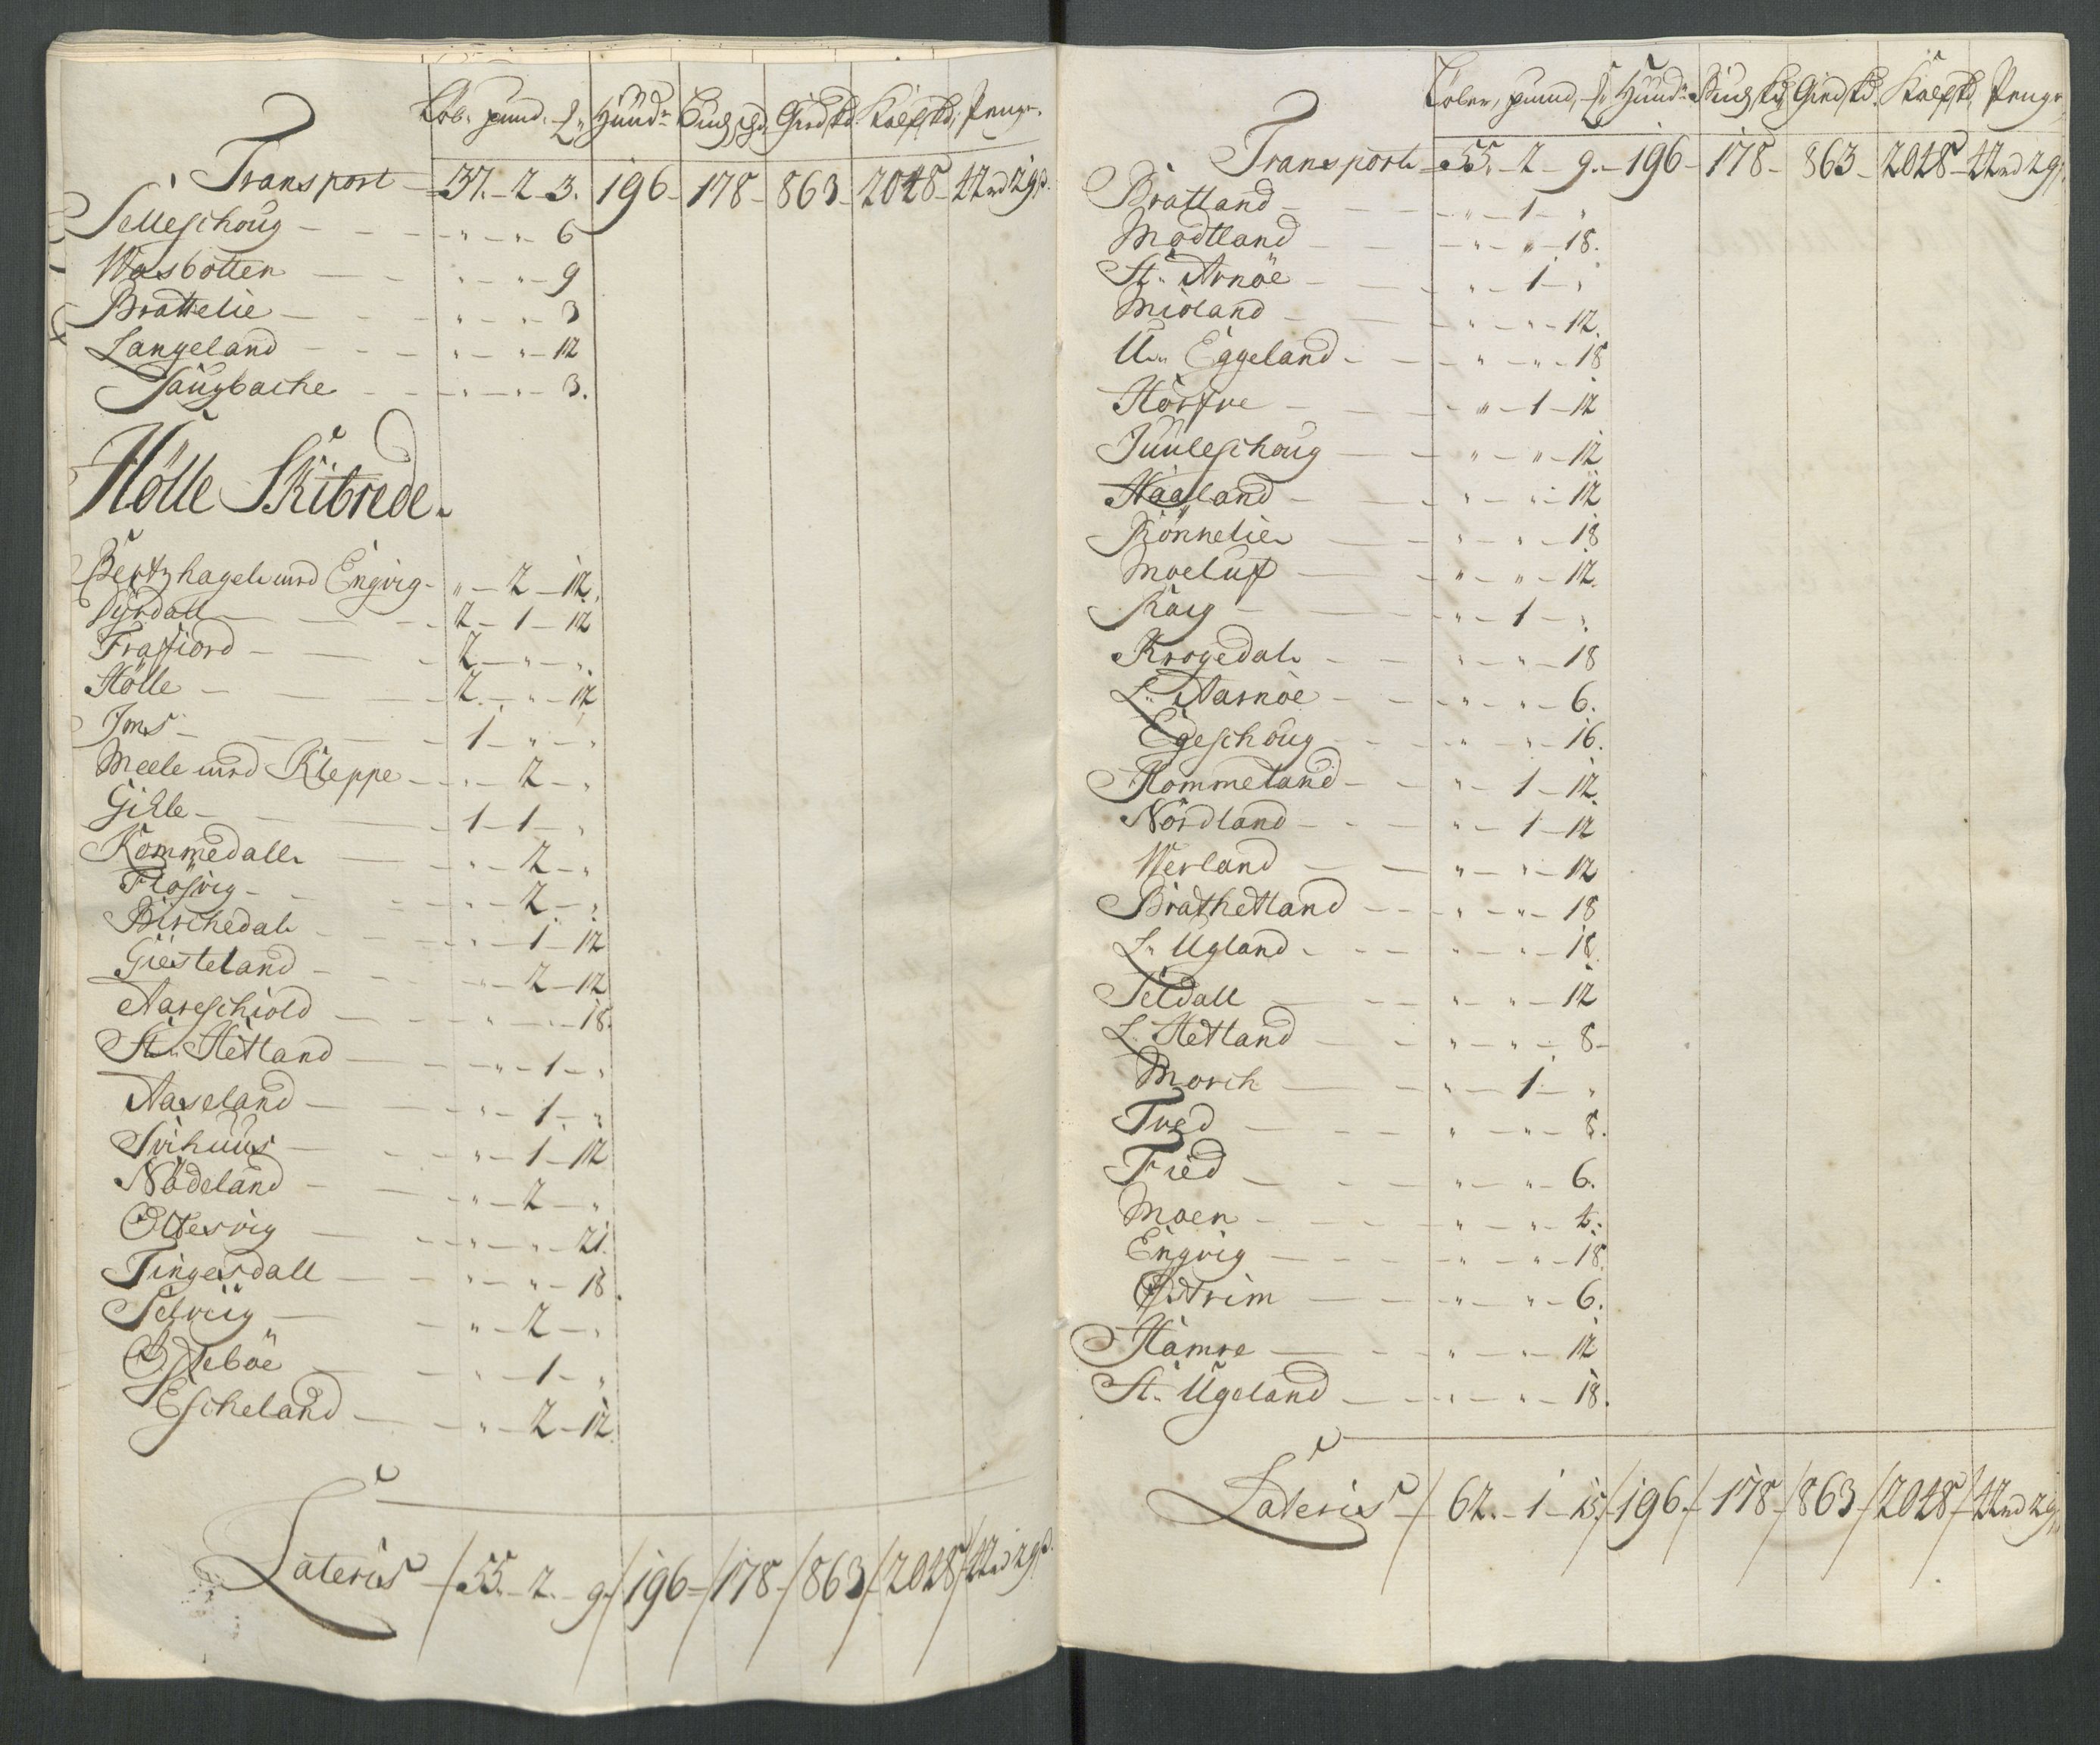 Lob. pund. Hund. Buchsk. Giedsk. Kalfsk. Penge.
Transport 37. 2 3. 196 178 863 2048 42 rd 29 s.
Selleschoug " " 6
Wasbotten " " 9
Brattelie " " 3
Langeland " " 12
Saugbache " " 3.
Hölle Skibrede.
hagel und Engvig " 2 12.
Dyrdall 2 1 12
Frafjord 2 " "
Hölle 2 " 12
Jms 1 " "
Meele und Kleppe " 2 "
Gille 1 1 "
Kommedall " 2 "
Fløsvig " 2 "
Birchedal " 1 12
Giesteland " 2 12
Aareschiold " " 18.
St. Hetland " 1 "
Aaseland " 1 "
Svihuus " 1 12
Nödeland " 2 "
Oltesvig " " 21.
Tingersdall " " 18.
Selviig " 2 "
Østeböe " 1 "
Escheland " 2 12.
Lateris 55. 2. 9. 196 178 863 2048 42 rd 29 s.
Lober, pund, Hund. Buchsk. Giedsk. Kalfsk. Penge
Transport 55. 2 9. 196 178 863 2048 42 rd 29 s.
Bratland " 1 "
Modtland " " 18.
St. Arnöe " 1 "
Midland " " 12.
U. Eggeland " " 18
Hörsve " 1 12
Juuleschoug " " 12
Haaland " " 12
Rönnelie " " 18
Moeluf " " 12.
Raig " 1 "
Krogedal " " 18
L. Aarnöe " " 6.
Egeschoug " " 16.
Hommeland " 1 12.
Nordland " 1 12
Werland " " 12
Brathetland " " 18
L. Ugland " " 18.
Seldall " " 12
L. Hetland " " 8
Morch " 1 "
Tved " " 8.
Fied " " 6.
Moen " " 4.
Engvig " " 18.
Østrim " " 6.
Hamre " " 12
St. Ugeland " " 18.
Lateris 62. 1 15 196 178 863 2048 42 rd 29 s